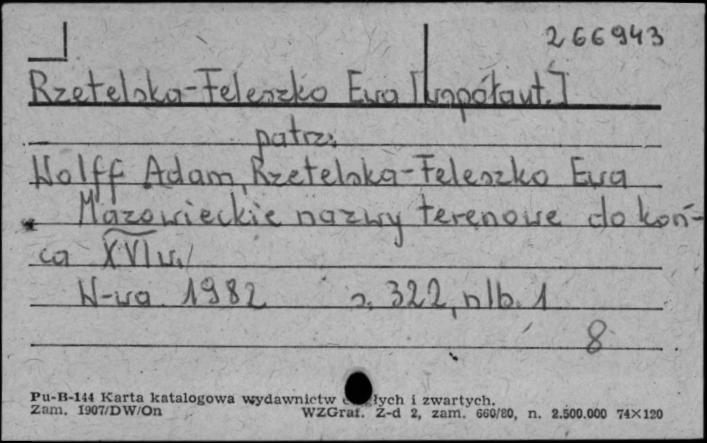 266943
Rzetelska-Feleszko Ewa [współaut.]
patrz:
Wolff Adam, Rzetelska-Feleszko Ewa
Mazowieckie nazwy terenowe do koń-
ca XVI w./
W-wa 1982 s. 322, nlb. 1
8
Pu-B-144 Karta katalogowa wydawnictw ciągłych i zwartych.
Zam. 1907/DW/On WZGraf. Z-d 2, zam. 660/80, n. 2.500.000 74×120